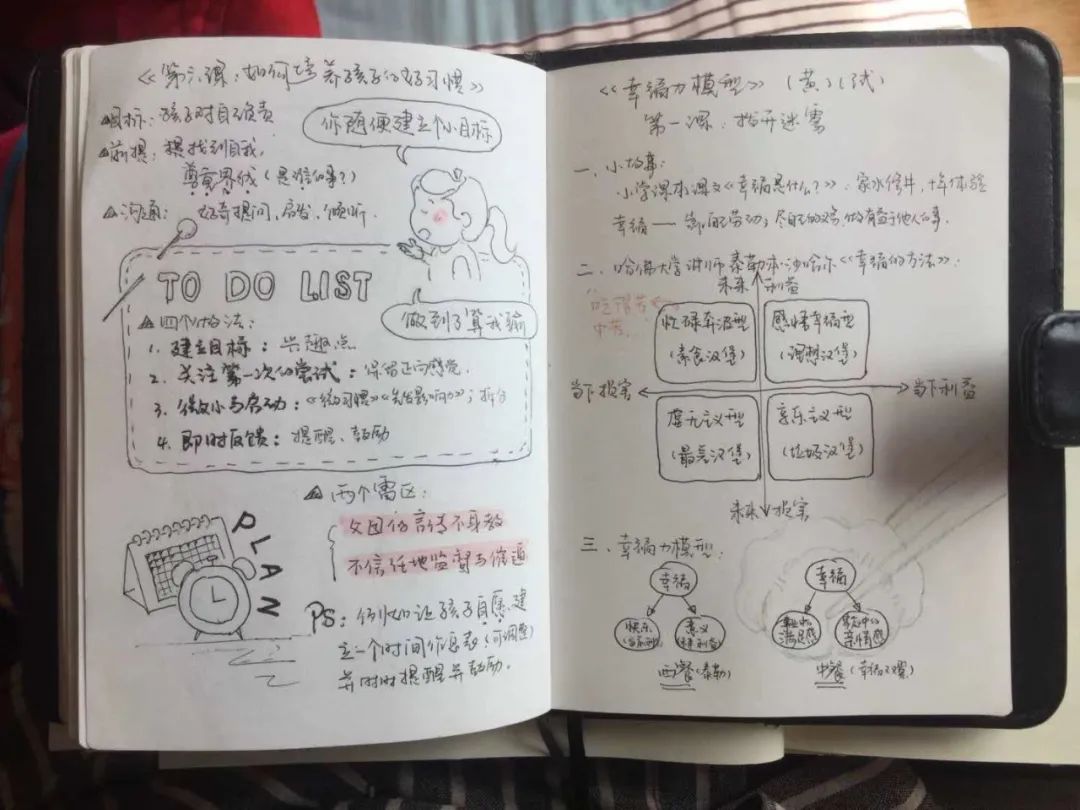 《第六课:如何培养孩子的好习惯》
▲目标:孩子对自己负责
▲前提:摆找到自我,
尊重界线(是谁的事?)
▲沟通:好奇提问、启发、倾听.
你随便建立个小目标
TO DO LIST
做到了算我输
▲四个办法:
1. 建立目标:兴趣点
2. 关注第一次的尝试:保留正向感觉.
3. 微小与启动:《微习惯》《先发影响力》;拆分
4. 即时反馈:提醒、鼓励
▲两个雷区:
父母的言传不身教
不信任地监督与催逼
PLAN
PS:例如让孩子自愿建
立一个时间作息表(可调整)
并时时提醒并鼓励。
《幸福力模型》(黄)(试)
第一课:拨开迷雾
一、小故事:
小学课本课文《幸福是什么?》:家水修井,十年体验
幸福——靠自己劳动;尽自己的义务,做有益于他人的事.
二、哈佛大学讲师泰勒本·沙哈尔《幸福的方法》:
未来利益
吃得苦
中苦...
忙碌奔波型
(素食汉堡)
感悟幸福型
(理想汉堡)
当下损害
当下利益
虚无主义型
(最差汉堡)
享乐主义型
(垃圾汉堡)
未来损害
三、幸福力模型:
幸福
快乐
意义
未来利益
西餐(泰勒)
幸福
满意感
亲情感
中餐(幸福)